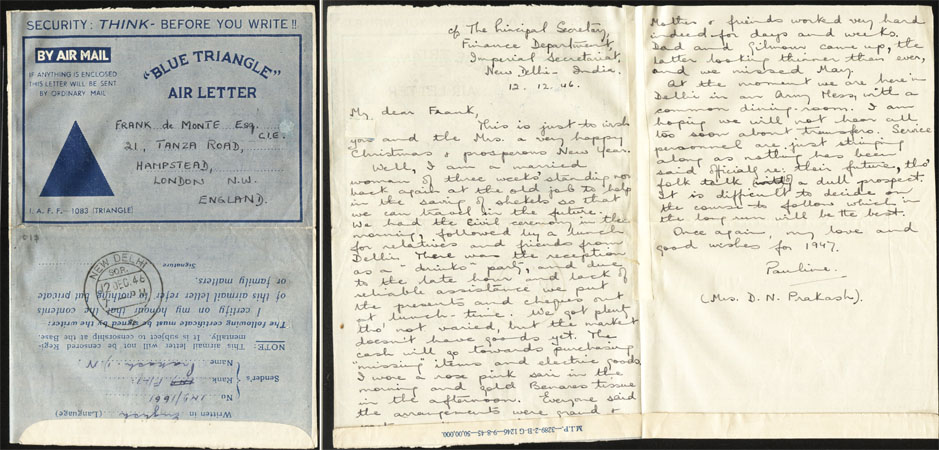 SECURITY: THINK- BEFORE YOU WRITE !!
BY AIR MAIL
IF ANYTHING IS ENCLOSED
THIS LETTER WILL BE SENT
BY ORDINARY MAIL
"BLUE TRIANGLE"
AIR LETTER
FRANK de MONTE Esq.
C.I.E.
21, TANZA ROAD,
HAMPSTEAD,
LONDON N.W.
ENGLAND.
I. A. F. F.- 1083 (TRIANGLE)
NEW DELHI
12 DEC. 46
Signature
or family matters.
of this airmail letter refer to nothing but private
I certify on my honour that the contents
The following certificate must be signed by the writer:
mentally. It is subject to censorship at the Base.
NOTE: This airmail letter will not be censored Regi-
Sender's
Name Prakash D. N.
Rank
No
Written in English (Language)
c/o The Principal Secretary,
Finance Department,
Imperial Secretariat,
New Delhi - India.
12. 12. 46.
My dear Frank,
This is just to wish
you and the Mrs. a very happy
Christmas & prosperous New Year.
Well, I am a married
woman of three weeks' standing now
back again at the old job to help
in the saving of shekels so that
we can travel in the future.
We had the Civil ceremony in the
morning, followed by a lunch
for relatives and friends from
Delhi. There was the reception
as a "drinks" party, and due
to the late hour and lack of
reliable assistance we put
the presents and cheques out
at lunch-time. We got plenty
tho' not varied, but the market
doesn't have goods yet. The
cash will go towards purchasing
"missing" items and electric goods.
I wore a rose pink sari in the
morning and gold Benares tissue
in the afternoon. Everyone said
the arrangements were grand &
M.I.P.—3289-2-B-G 1246—9-8-45—50,00,000.
Mother & friends worked very hard
indeed for days and weeks.
Dad and Gilmour came up, the
latter looking thinner than ever,
and we missed May.
At the moment we are here in
Delhi in an Army Mess, with a
common dining-room. I am
hoping we will not hear all
too soon about transfers. Service
personnel are just stringing
along as nothing has been
said officially re: their future, tho'
folk talk of a dull prospect.
It is difficult to decide on
the course to follow which in
the long run will be the best.
Once again, my love and
good wishes for 1947.
Pauline.
(Mrs. D. N. Prakash).